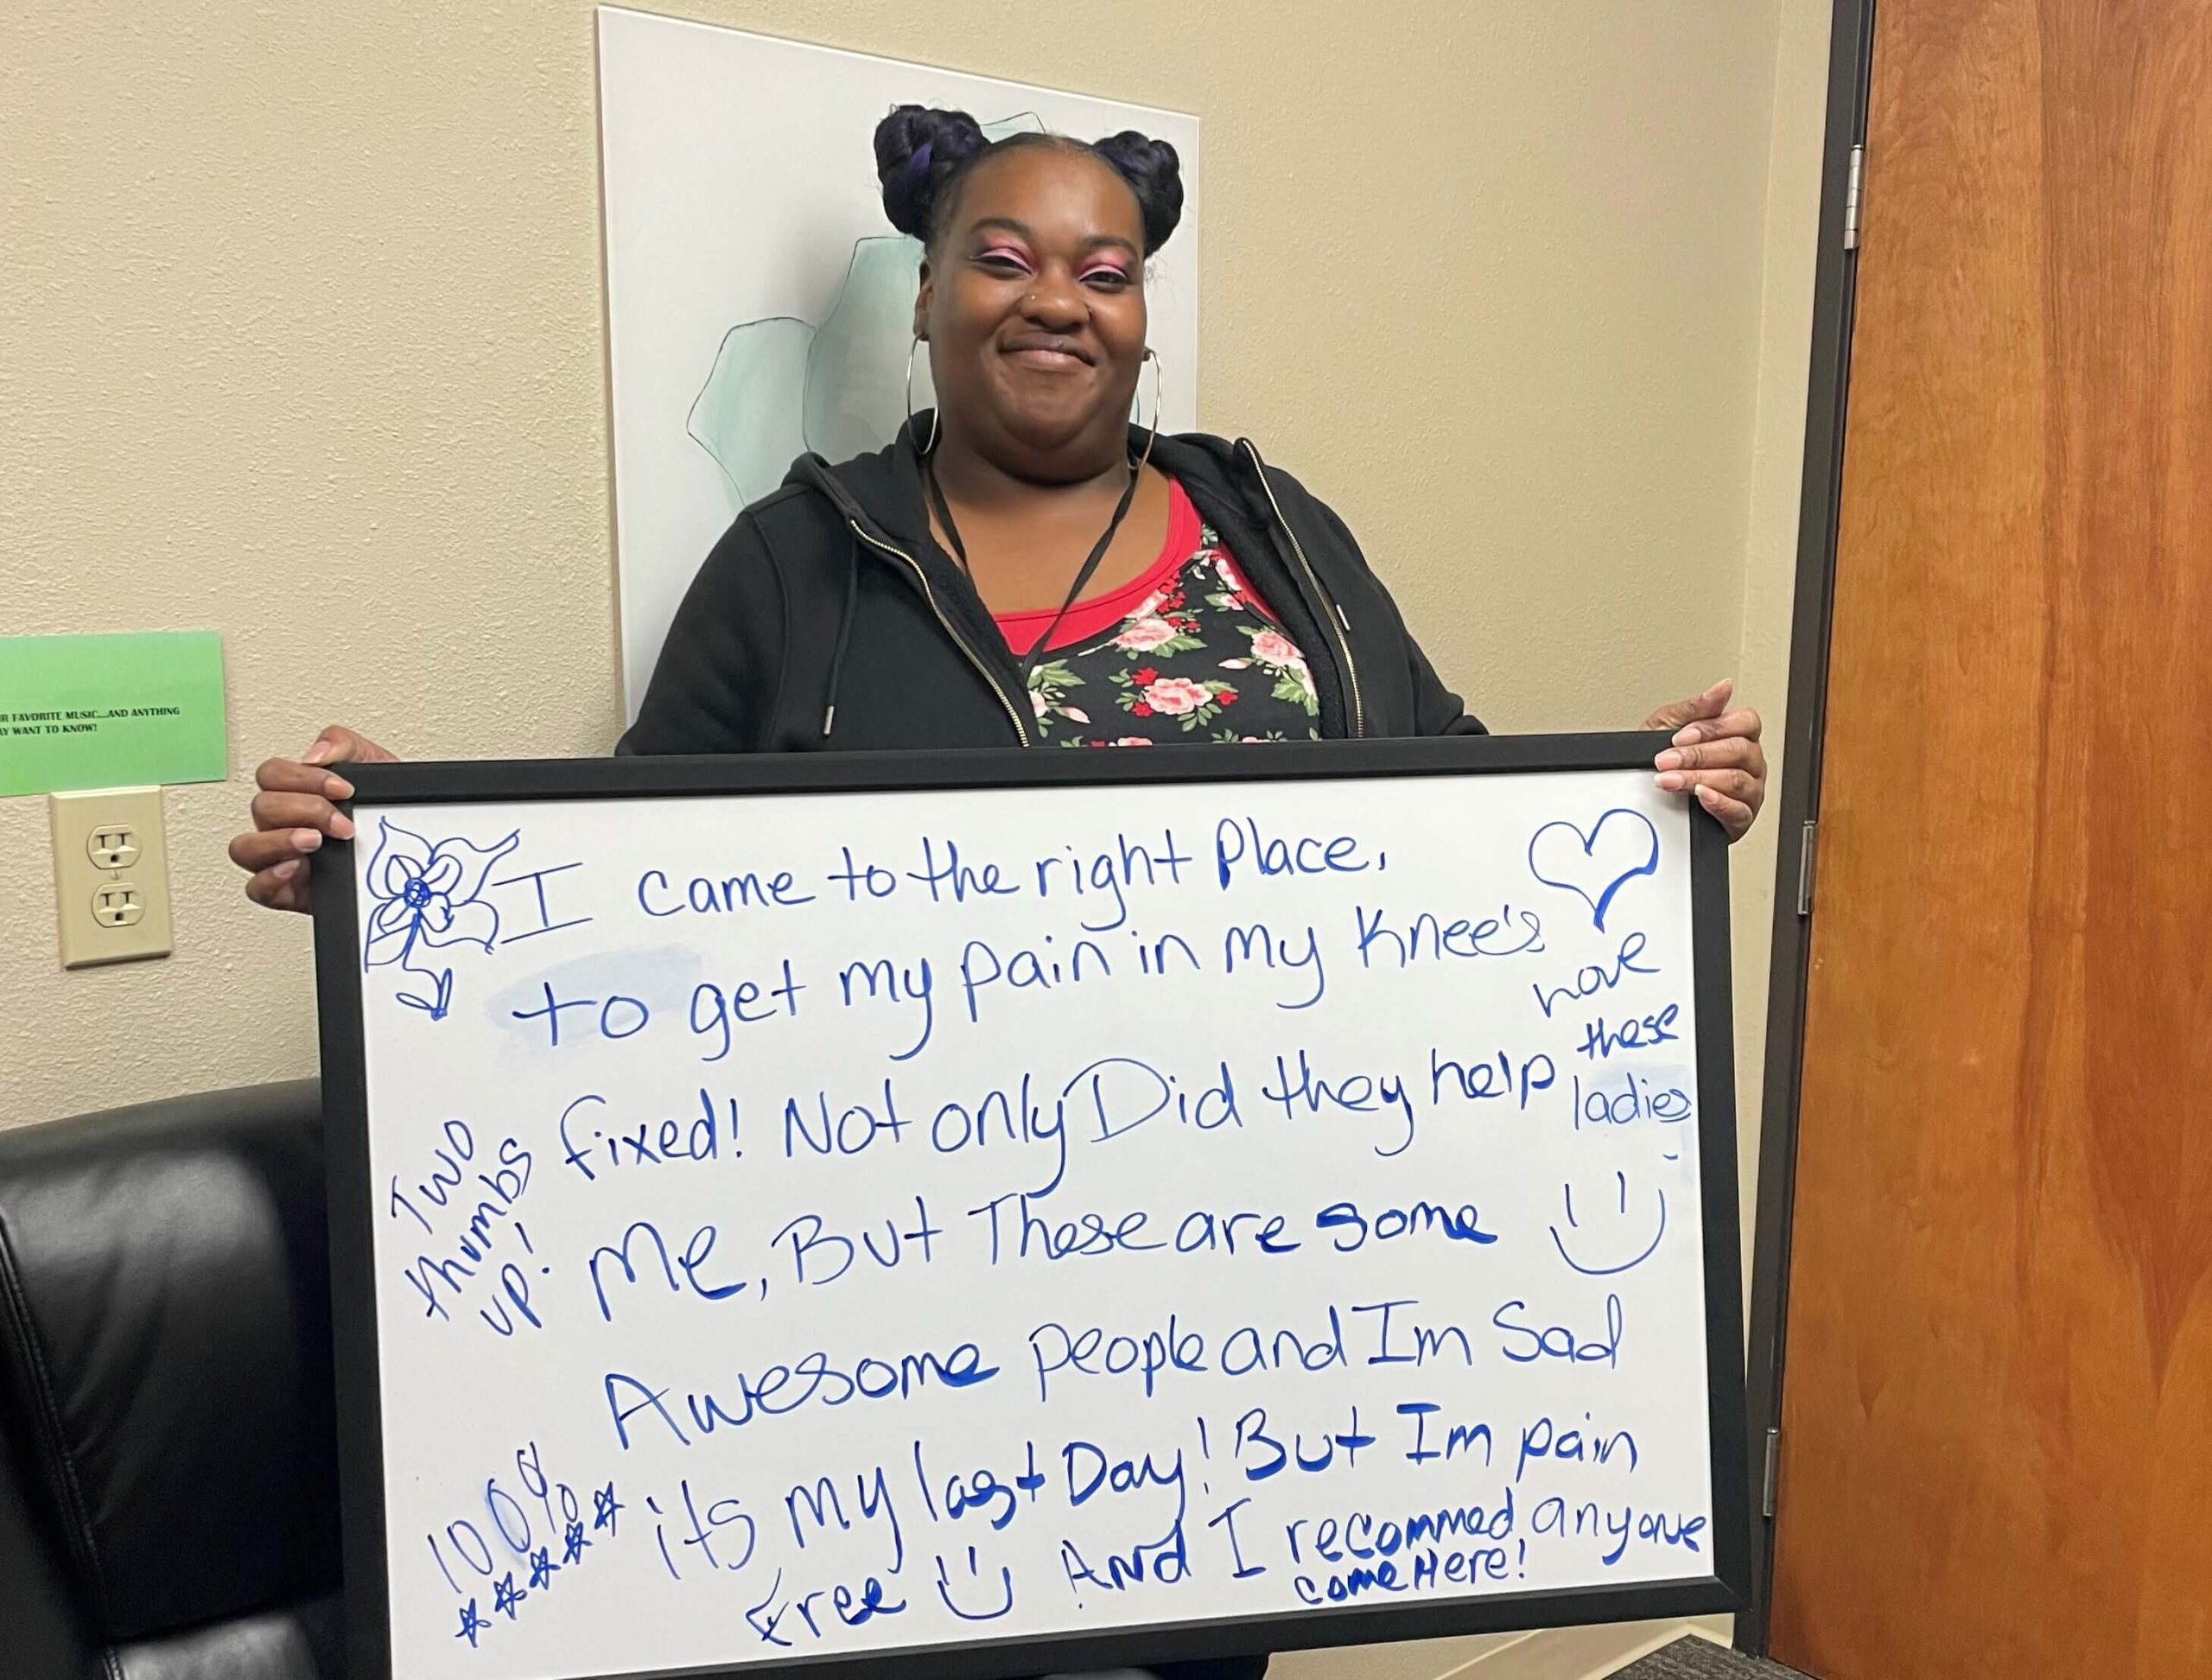 R FAVORITE MUSIC...AND ANYTHING
AY WANT TO KNOW!
I came to the right Place.
to get my pain in my Knee's
fixed! Not only Did they help
Me, But These are some
Awesome people and Im Sad
its my last Day! But Im pain
free And I recommed anyone
come Here!
Love
these
ladies
Two
thumbs
up!
100%